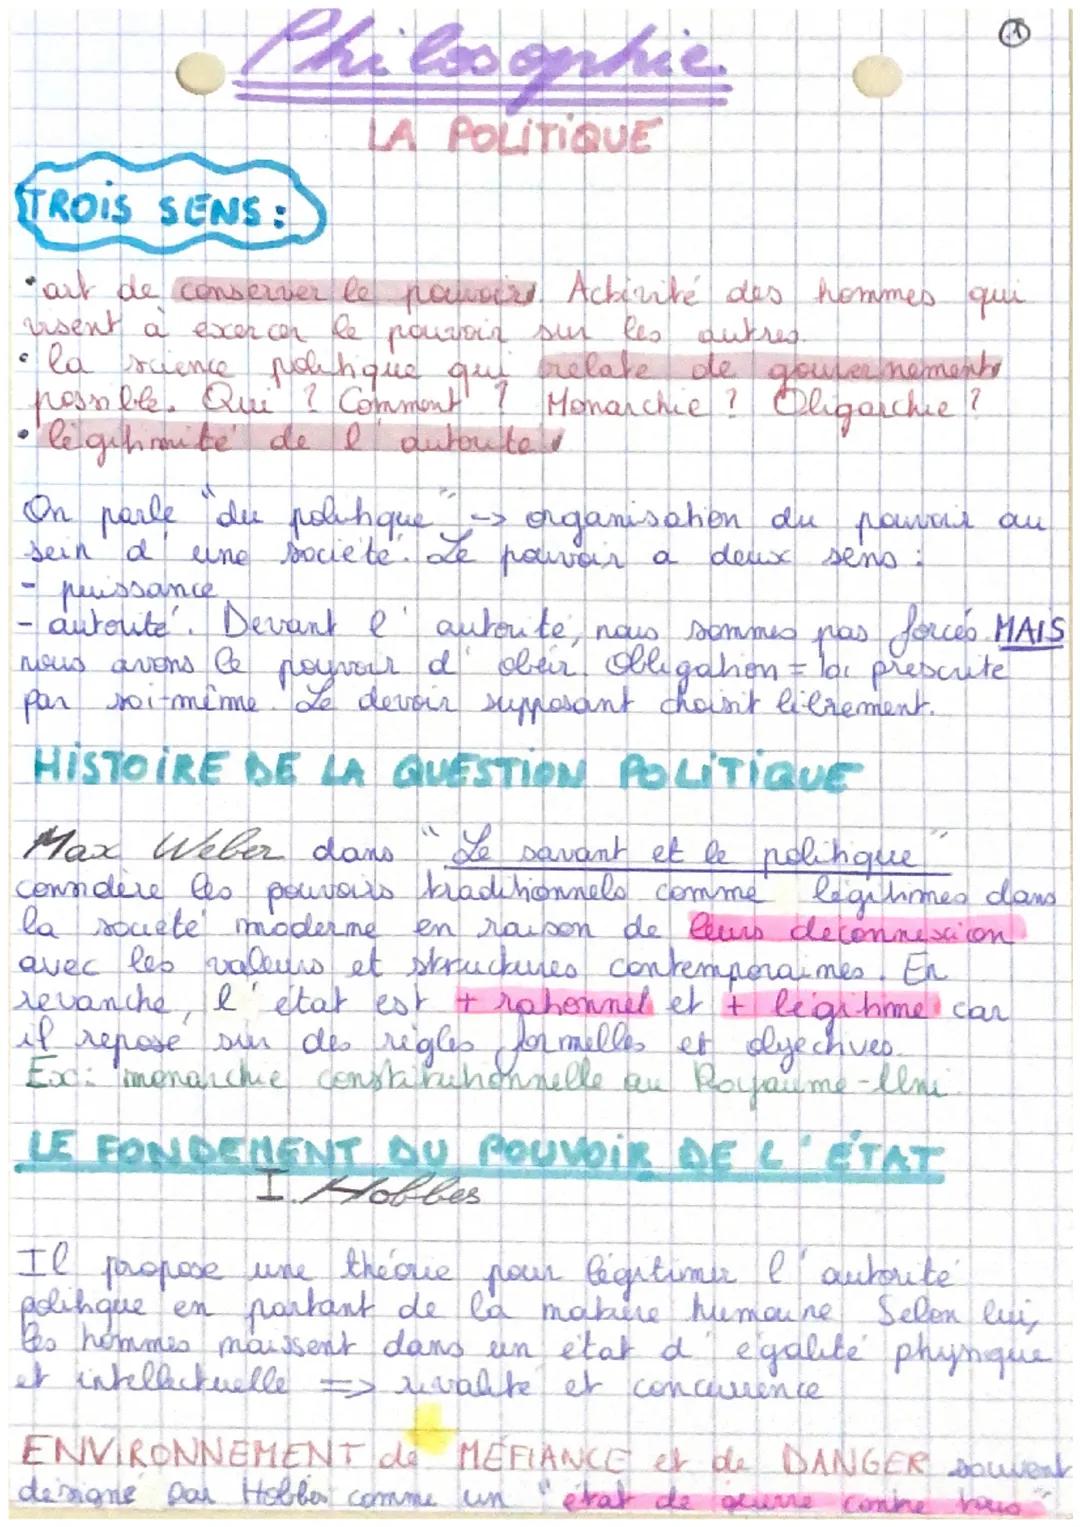 1
Philosophie
LA POLITIQUE
TROIS SENS :
• art de conserver le pouvoir. Activité des hommes qui
visent à exercer le pouvoir sur les autres.
• la science politique qui relate de gouvernements
possible. Qui ? Comment ? Monarchie ? Oligarchie ?
• légitimité de l'autorité
On parle "du politique" -> organisation du pouvoir au
sein d'une société. Le pouvoir a deux sens :
- puissance
- autorité. Devant l'autorité, nous sommes pas forcés MAIS
nous avons le pouvoir d'obéir. Obligation = loi prescrite
par soi-même. Le devoir supposant choisit librement.
HISTOIRE DE LA QUESTION POLITIQUE
Max Weber dans "Le savant et le politique"
considère les pouvoirs traditionnels comme légitimes dans
la société moderne en raison de leurs déconnexion
avec les valeurs et structures contemporaines. En
revanche, l'état est + rationnel et + légitime car
il repose sur des règles formelles et objectives.
Ex : monarchie constitutionnelle au Royaume-Uni.
LE FONDEMENT DU POUVOIR DE L'ÉTAT
I. Hobbes
Il propose une théorie pour légitimer l'autorité
politique en partant de la nature humaine. Selon lui,
les hommes naissent dans un état d'égalité physique
et intellectuelle => rivalité et concurrence
ENVIRONNEMENT de MÉFIANCE et de DANGER souvent
désigné par Hobbes comme un "état de guerre contre tous"